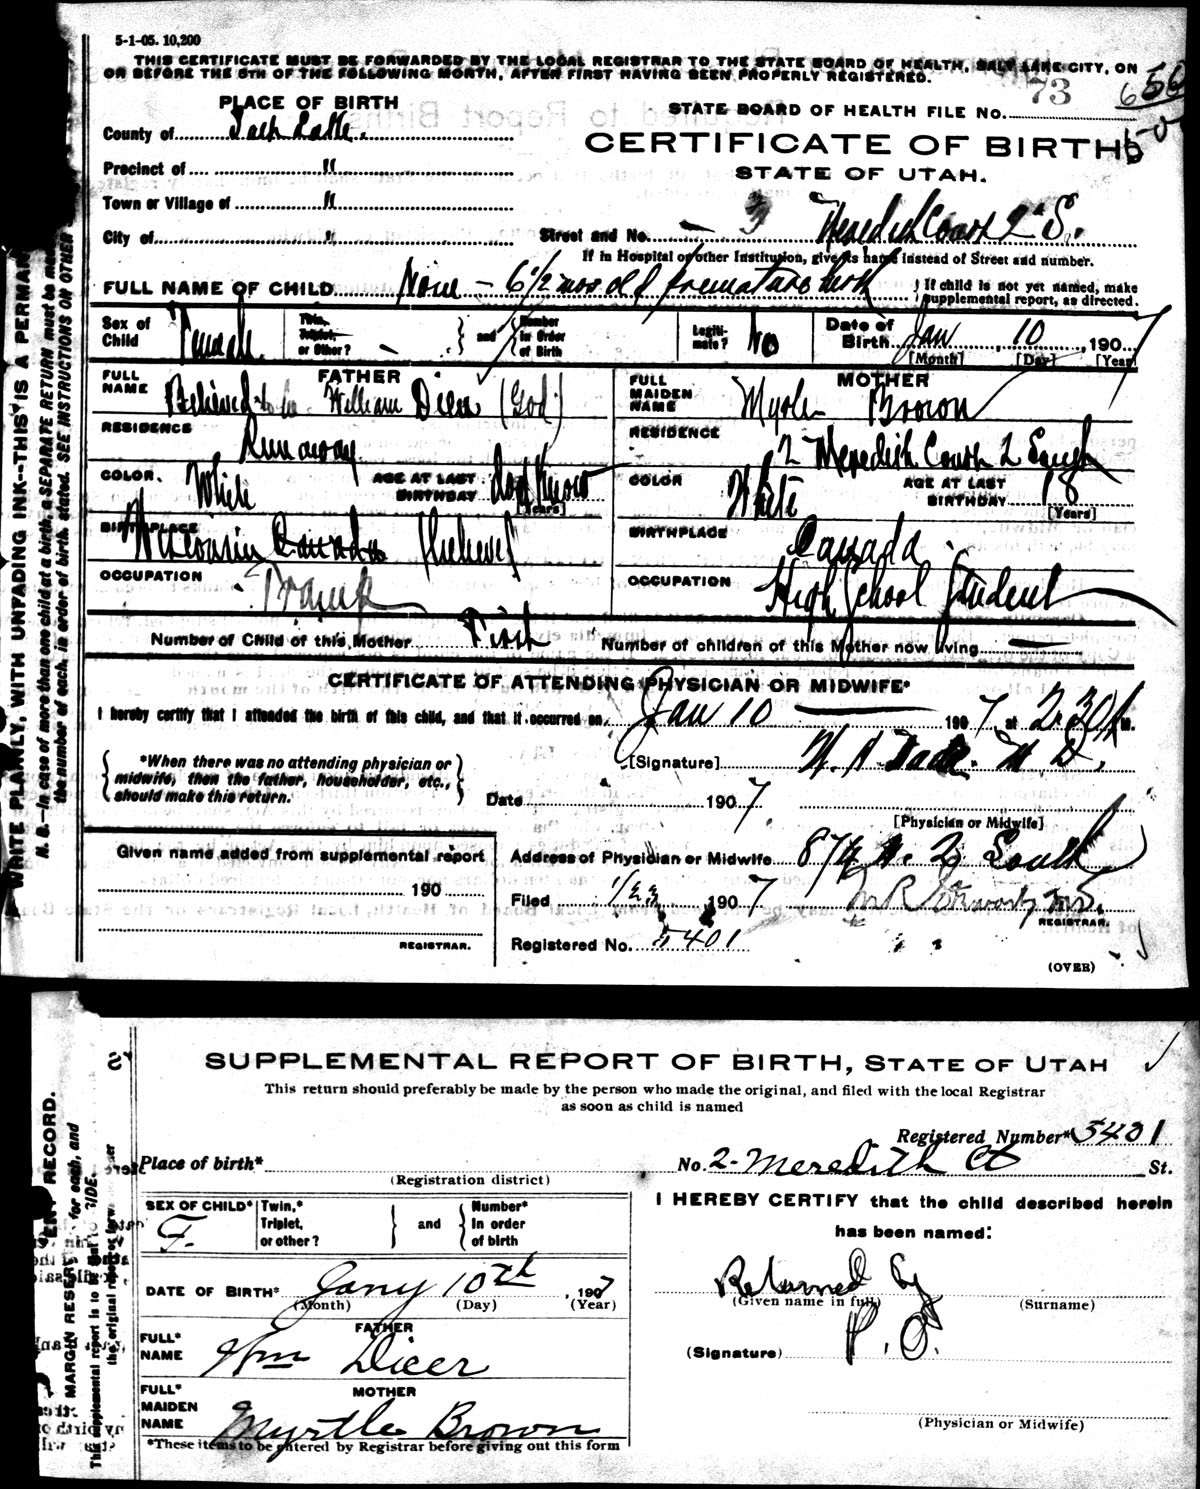 5-1-05. 10,200
THIS CERTIFICATE MUST BE FORWARDED BY THE LOCAL REGISTRAR TO THE STATE BOARD OF HEALTH, SALT LAKE CITY, ON
OR BEFORE THE 5TH OF THE FOLLOWING MONTH, AFTER FIRST HAVING BEEN PROPERLY REGISTERED.
73
PLACE OF BIRTH
STATE BOARD OF HEALTH FILE No.
County of Salt Lake.
CERTIFICATE OF BIRTH
Precinct of "
STATE OF UTAH.
Town or Village of "
City of "
Street and No. — 3 Meredith Court 2 S.
If in Hospital or other Institution, give its name instead of Street and number.
FULL NAME OF CHILD None - 6 1/2 mos old premature birth
If child is not yet named, make supplemental report, as directed.
Sex of Child Female
Twin, Triplet, or Other? —
and
Number in Order of Birth
Legitimate? No
Date of Birth Jan 10, 1907
[Month] [Day] [Year]
FATHER
FULL NAME Believed to be William Dicer (God)
RESIDENCE Runaway
COLOR. White
AGE AT LAST BIRTHDAY dont Know
[Years]
BIRTHPLACE Wisconsin Canada (believe)
OCCUPATION Tramp
MOTHER
FULL MAIDEN NAME Myrtle Brown
RESIDENCE 2 Meredith Court 2 South
COLOR White
AGE AT LAST BIRTHDAY 18
[Years]
BIRTHPLACE Canada.
OCCUPATION High School Student
Number of Child of this Mother First
Number of children of this Mother now living —
CERTIFICATE OF ATTENDING PHYSICIAN OR MIDWIFE*
I hereby certify that I attended the birth of this child, and that it occurred on Jan 10 1907 at 2.30 P M.
*When there was no attending physician or
midwife, then the father, householder, etc.,
should make this return.
[Signature] M. D.
Date 1907
[Physician or Midwife]
Given name added from supplemental report
190
REGISTRAR.
Address of Physician or Midwife 2 South
Filed 1/23 1907 M R Stewart, M.D.
REGISTRAR.
Registered No. 5401
(OVER)
WRITE PLAINLY, WITH UNFADING INK--THIS IS A PERMAN
N. B.—In case of more than one child at a birth, a SEPARATE RETURN must be made
the number of each, in order of birth stated. SEE INSTRUCTIONS ON OTHER
SUPPLEMENTAL REPORT OF BIRTH, STATE OF UTAH
This return should preferably be made by the person who made the original, and filed with the local Registrar
as soon as child is named
Registered Number* 5401
Place of birth*
(Registration district)
No. 2- Meredith Ct St.
SEX OF CHILD* F.
Twin,* Triplet, or other?
and
Number* In order of birth
DATE OF BIRTH* Jany 10th, 1907
(Month) (Day) (Year)
FATHER
FULL* NAME Wm Dicer
MOTHER
FULL* MAIDEN NAME Myrtle Brown
*These items to be entered by Registrar before giving out this form
I HEREBY CERTIFY that the child described herein
has been named:
Returned by
(Given name in full) (Surname)
P. O.
(Signature)
(Physician or Midwife)
ENT RECORD.
MARGIN RESER for each, and